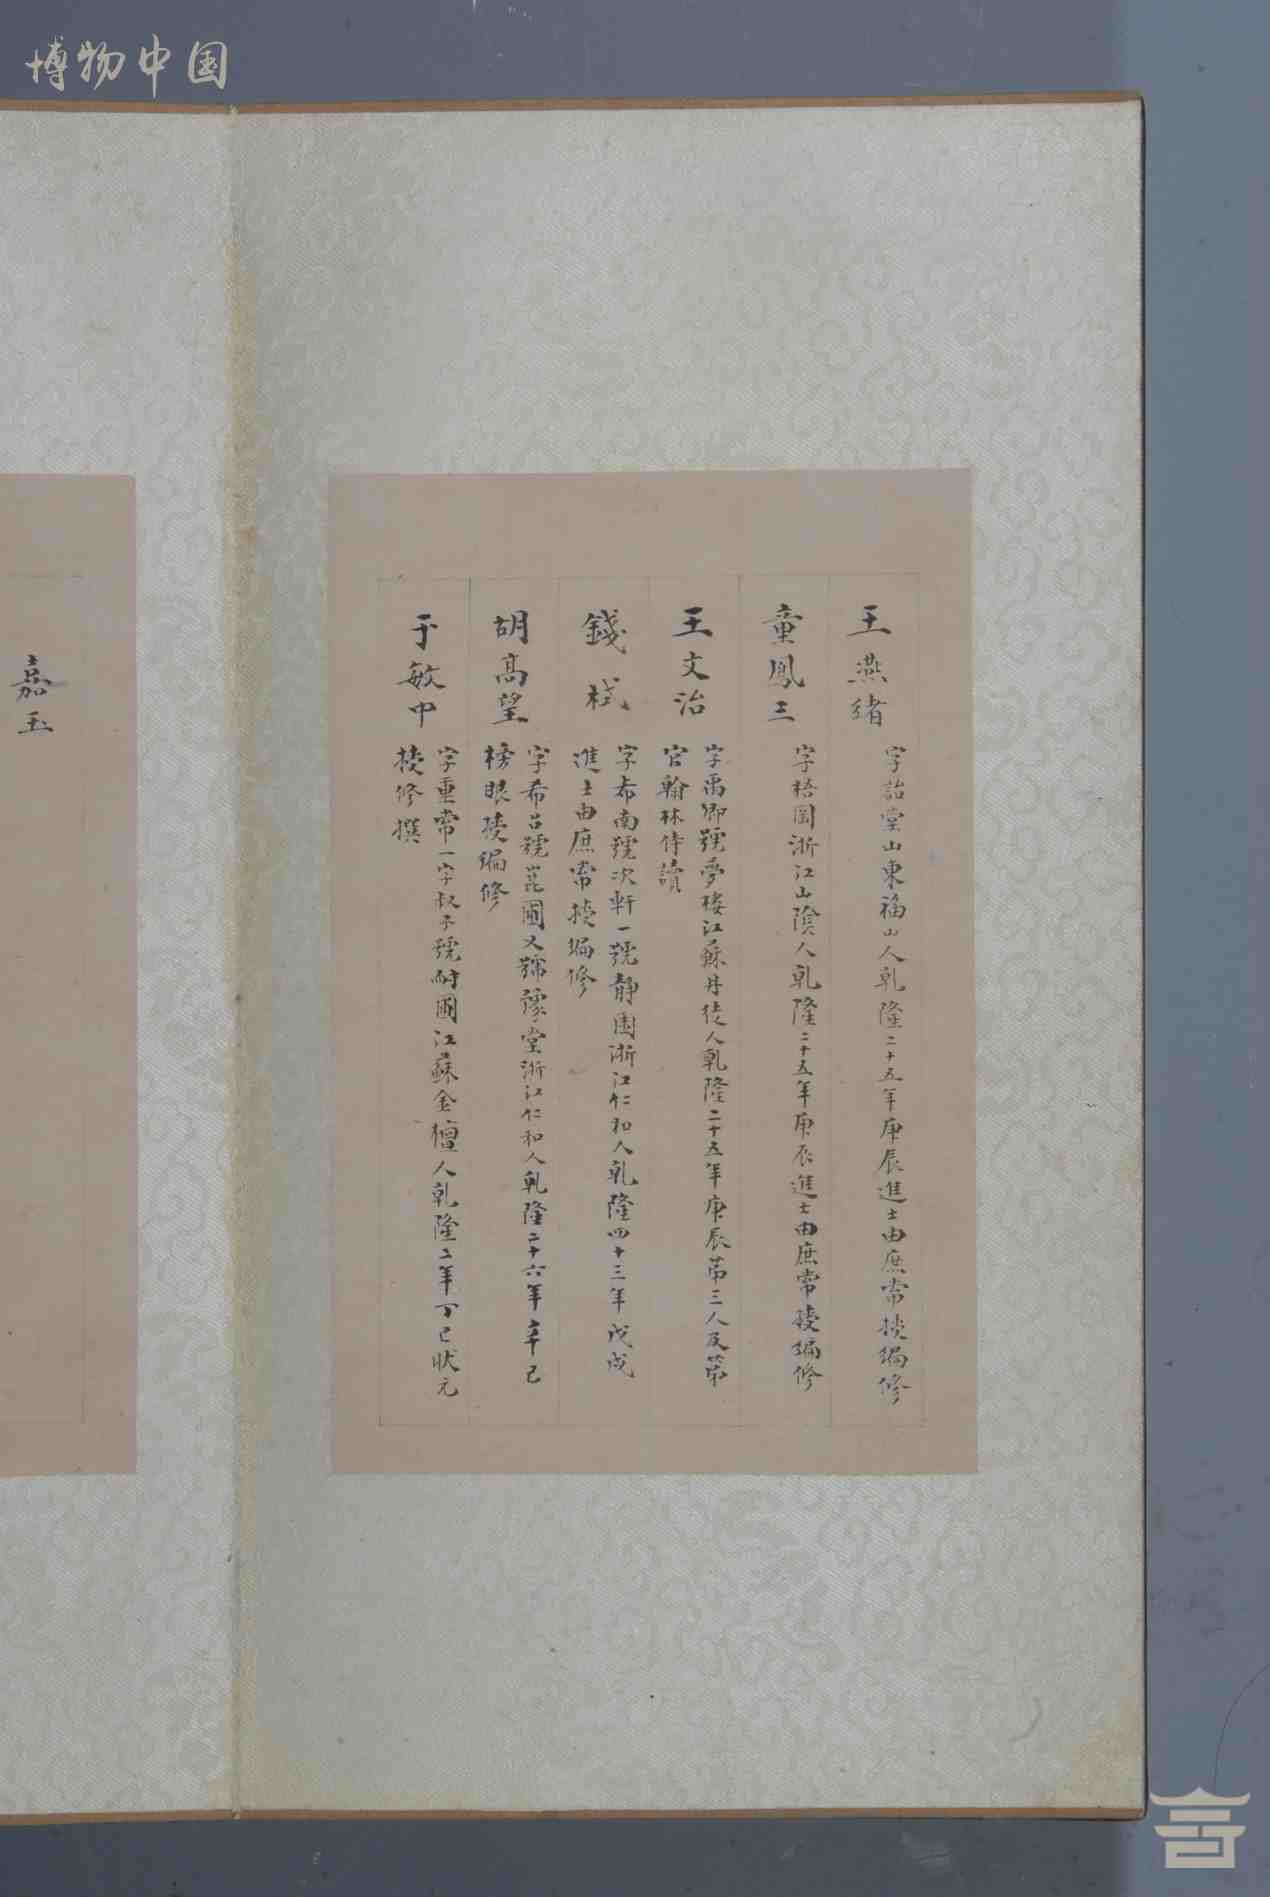 博物中国
王燕緒
字詒堂山東福山人乾隆二十五年庚辰進士由庶常授編修
童鳳三
字梧岡浙江山陰人乾隆二十五年庚辰進士由庶常授編修
王文治
字禹卿號夢樓江蘇丹徒人乾隆二十五年庚辰第三人及第
官翰林侍讀
錢栻
字希南號次軒一號靜園浙江仁和人乾隆四十三年戊戌
進士由庶常授編修
胡高望
字希呂號崑圃又號豫堂浙江仁和人乾隆二十六年辛巳
榜眼授編修
于敏中
字重常一字叔子號耐圃江蘇金檀人乾隆二年丁巳狀元
授修撰
嘉玉